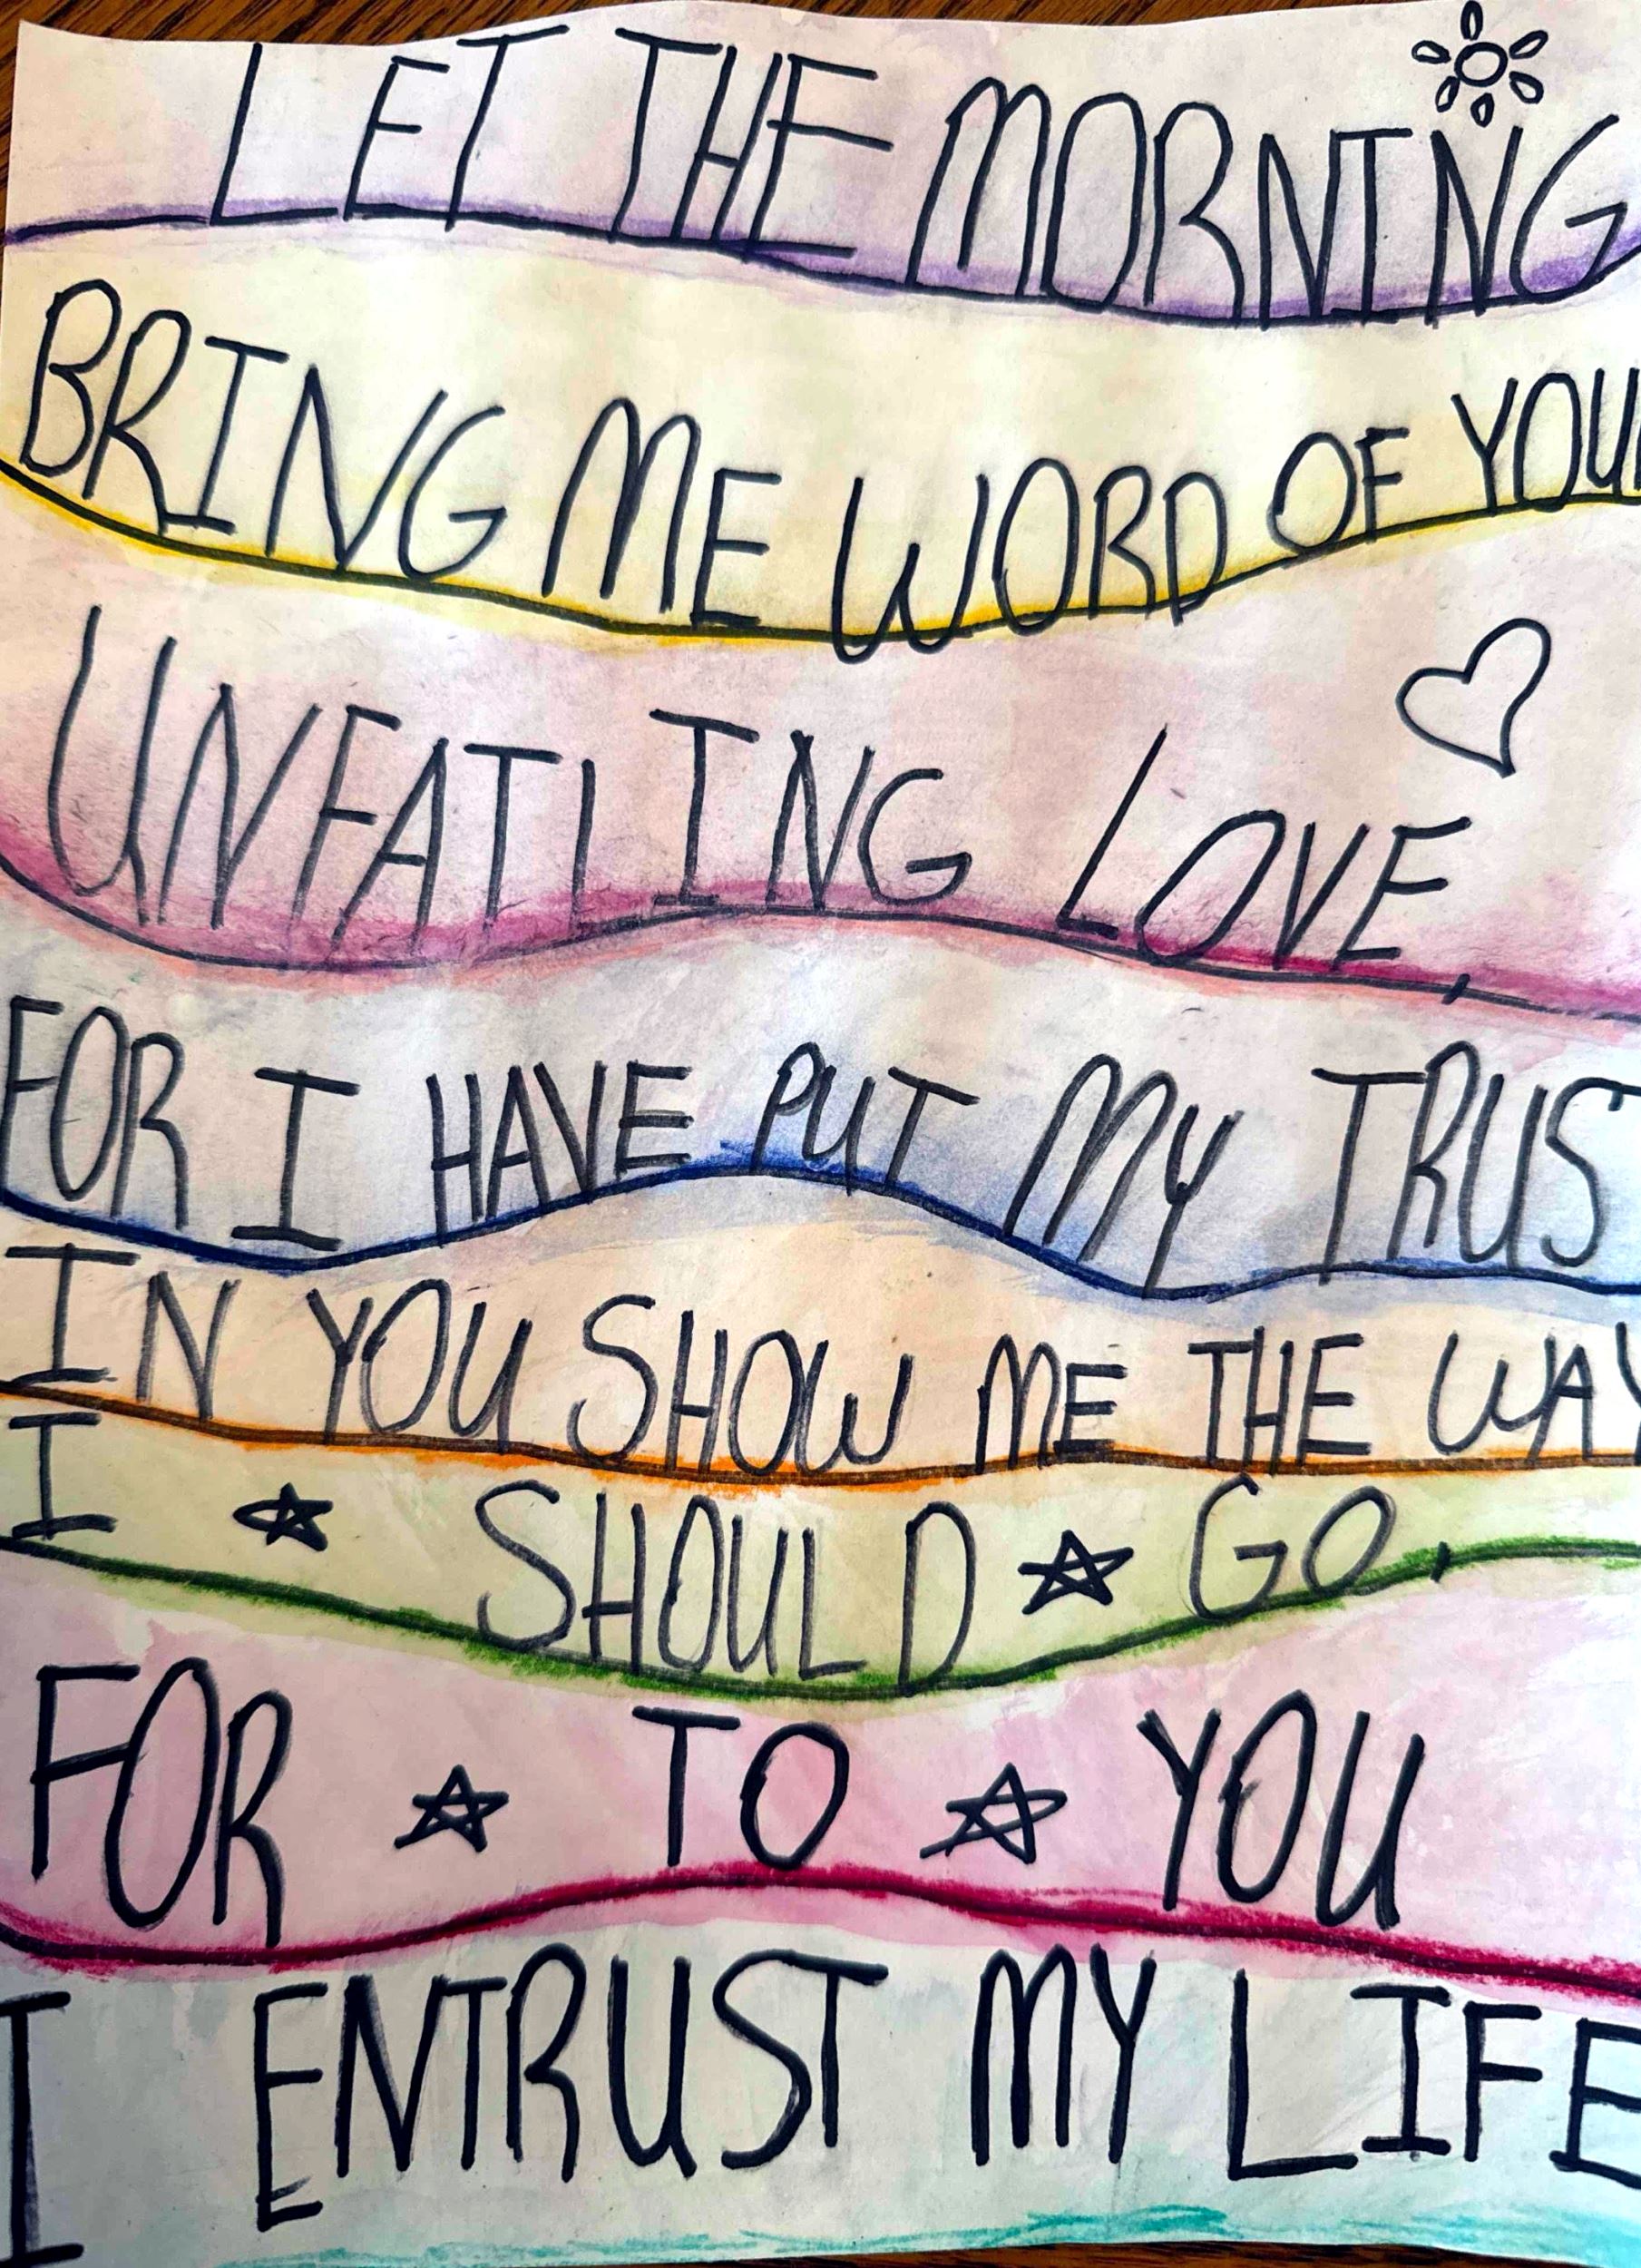 LET THE MORNING
BRING ME WORD OF YOUR
UNFAILING LOVE,
FOR I HAVE PUT MY TRUST
IN YOU SHOW ME THE WAY
I SHOULD GO.
FOR TO YOU
I ENTRUST MY LIFE